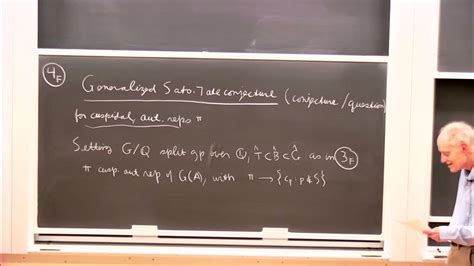 4F
Generalized Sato-Tate conjecture (conjecture/question)
for cuspidal, aut. reps π
Setting G/Q split gp over Q, T̂ ⊂ B̂ ⊂ Ĝ as in 3F
π cusp. aut rep of G(A), with π → {cp : p ∉ S}